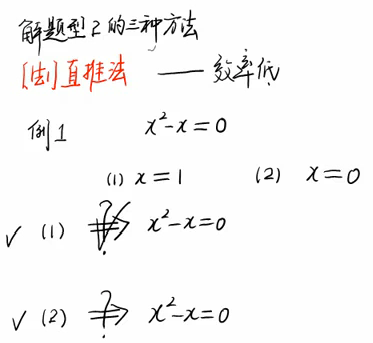 解题型2的三种方法
[法1]直推法 —— 效率低
例1 x²-x=0
(1) x=1 (2) x=0
✓ (1) ?⇒ x²-x=0
✓ (2) ?⇒ x²-x=0